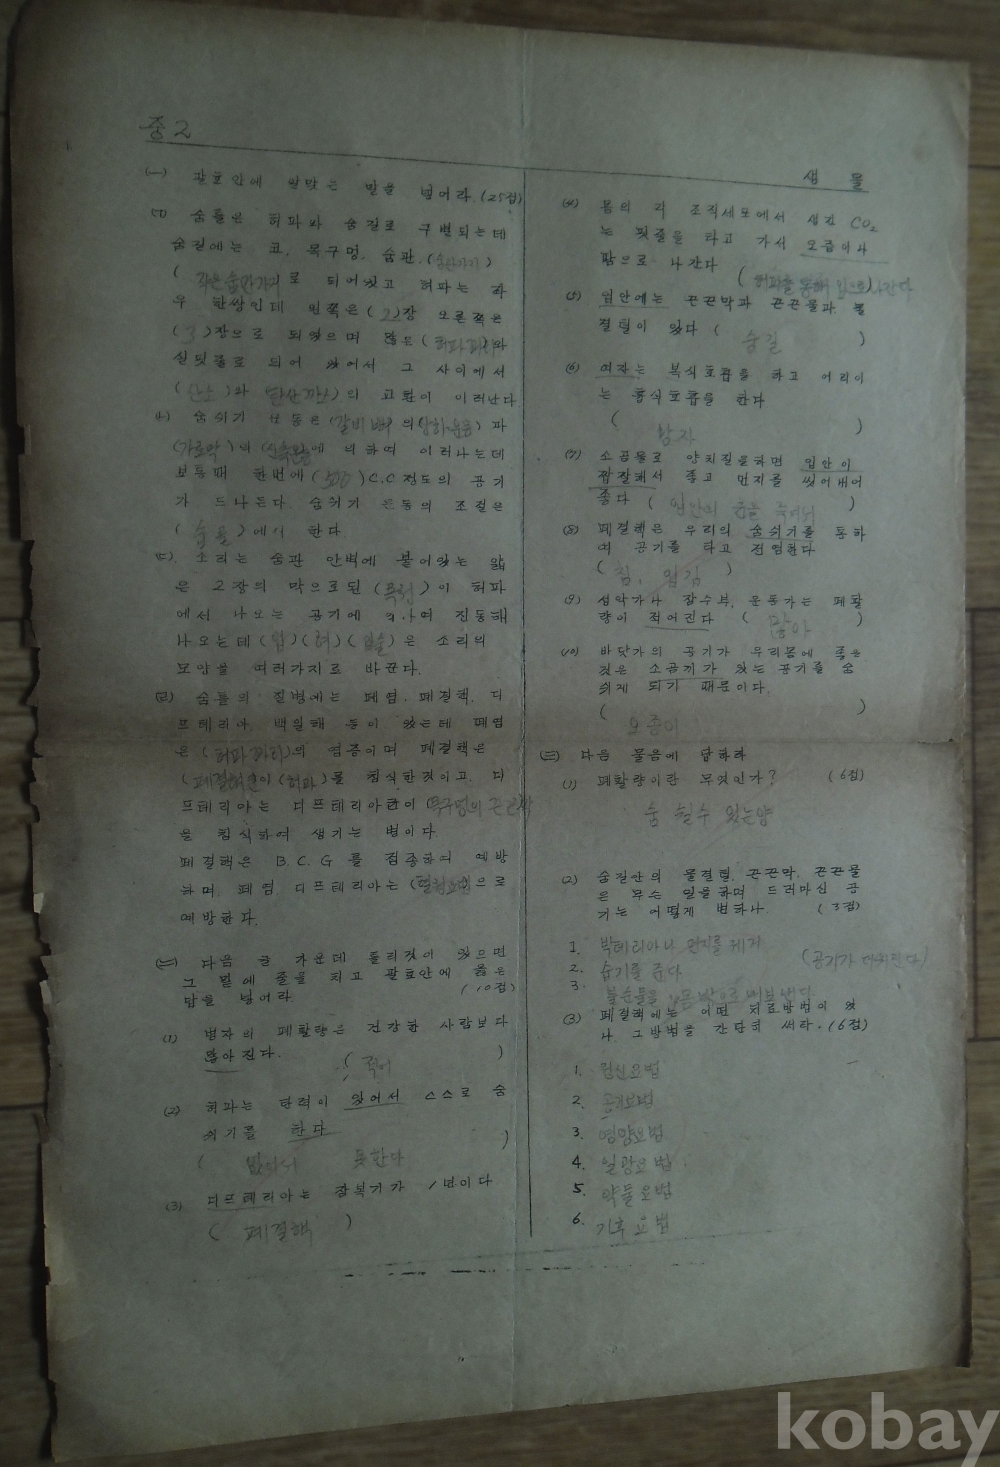 중2
생물
(一) 괄호안에 알맞는 말을 넣어라. (25점)
(ㄱ) 숨틀은 허파와 숨길로 구별되는데
숨길에는 코. 목구멍. 숨관. (숨관가지)
(작은숨관가지로 되어있고 허파는 좌
우 한쌍인데 왼쪽은 (2)장 오른쪽은
(3)장으로 되었으며 많은 (허파꽈리)와
실핏줄로 되어 있어서 그 사이에서
(산소)와 탄산까스)의 교환이 이러난다.
숨쉬기 운동은 (갈비뼈)의 (상하운동)과
(가로막)의 에 의하여 이러나는데
보통때 한번에 (500)C.C 정도의 공기
가 드나든다. 숨쉬기 운동의 조절은
(숨골)에서 한다.
(ㄷ) 소리는 숨관 안벽에 붙어있는 얇
은 2장의 막으로된 (목청)이 허파
에서 나오는 공기에 의하여 진동해
나오는데 (입)(혀)(입술)은 소리의
모양을 여러가지로 바꾼다.
(ㄹ) 숨틀의 질병에는 폐염. 폐결핵. 디
프테리아. 백일해 등이 있는데 폐염
은 (허파꽈리)의 염증이며 폐결핵은
(폐결핵균)이 (허파)를 침식한것이고. 디
프테리아는 디프테리아균이 (목구멍의
을 침식하여 생기는 병이다.
폐결핵은 B.C.G 를 접종하여 예방
하며. 폐염. 디프테리아는 으로
예방한다.
(二) 다음 글 가운데 틀리것이 있으면
그 밑에 줄을 치고 괄호안에 옳은
답을 넣어라 (10점)
(1) 병자의 폐활량은 건강한 사람보다
많아진다. (적어)
(2) 허파는 탄력이 있어서 스스로 숨
쉬기를 한다
(없어서 못한다)
(3) 디프테리아는 잠복기가 1년이다
(폐결핵)
(4) 몸의 각 조직세포에서 생긴 CO₂
는 핏줄을 타고 가서 오줌이나
땀으로 나간다
(허파를 통해 입으로)나간다
(5) 입안에는 끈끈막과 끈끈물과 물
결털이 있다 (숨길)
(6) 여자는 복식호흡을 하고 어리이
는 흉식호흡을 한다
(남자)
(7) 소금물로 양치질을하면 입안이
짭잘해서 좋고 먼지를 씻어내어
좋다 (입안의 균을 죽여서)
(8) 폐결핵은 우리의 숨쉬기를 통하
여 공기를 타고 전염한다
(침, 입김)
(9) 성악가나 잠수부. 운동가는 폐활
량이 적어진다 (많아)
(10) 바닷가의 공기가 우리몸에 좋은
것은 소금끼가 있는 공기를 숨
쉬게 되기 때문이다.
(오존이)
(三) 다음 물음에 답하라
(1) 폐활량이란 무엇인가? (6점)
숨 쉴수 있는양
(2) 숨길안의 물결털. 끈끈막. 끈끈물
은 무슨 일을하며 드러마신 공
기는 어떻게 변하나. (3점)
1. 박테리아나 먼지를 제거
2. 습기를 준다. (공기가 더워진다)
3. 불순물을 밖으로 내보낸다.
(3) 폐결핵에는 어떤 치료방법이 있
나 그방법을 간단히 써라. (6점)
1. 정신요법
2. 공기요법
3. 영양요법
4. 일광요법.
5. 약물요법
6. 기후요법
kobay